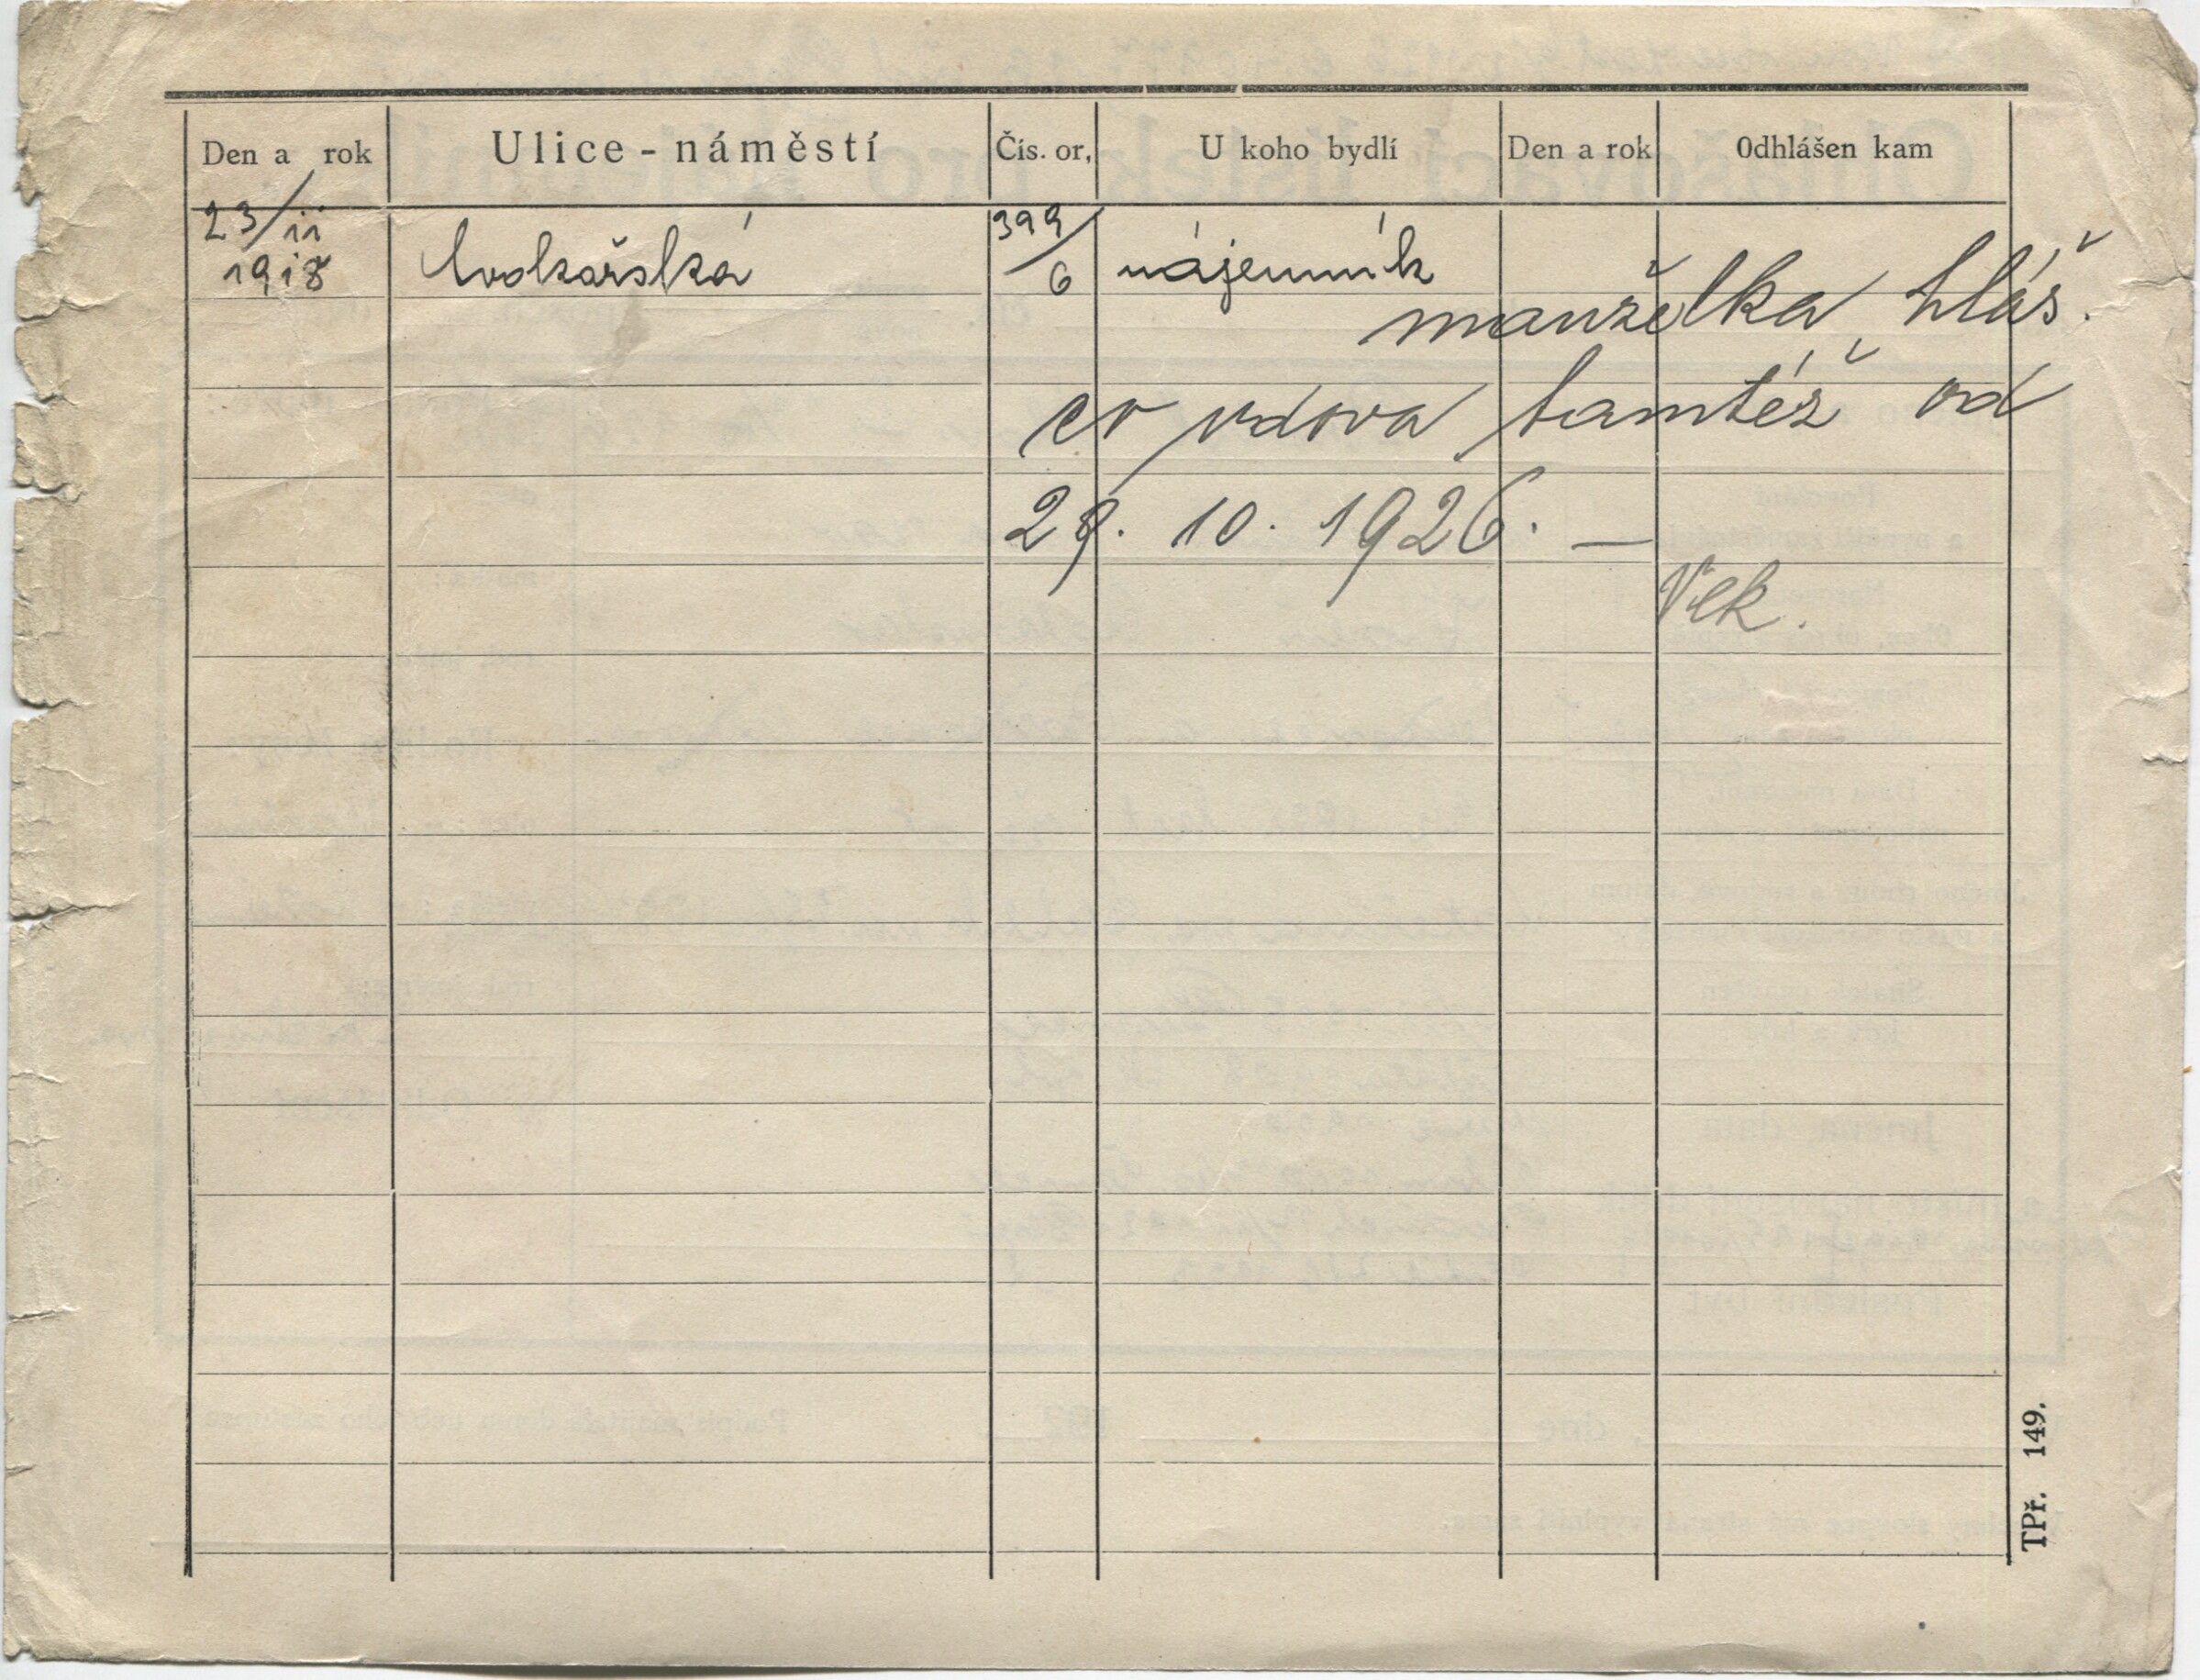 Den a rok Ulice - náměstí Čís. or. U koho bydlí Den a rok Odhlášen kam
23/11 399/
1918 Lodkařská 6 nájemník
manželka hláš.
co vdova tamtéž od
29. 10. 1926. —
Vlk.
TPř. 149.